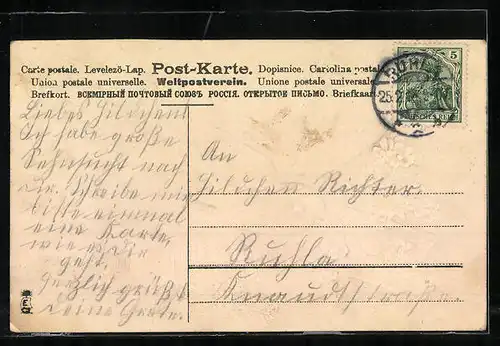 Carte postale. Levelező-Lap. Post-Karte. Dopisnice. Cartolina postale
Union postale universelle. Weltpostverein. Unione postale universale
Brefkort. ВСЕМІРНЫЙ ПОЧТОВЫЙ СОЮЗЪ РОССІЯ. ОТКРЫТОЕ ПИСЬМО. Briefkaart
5
RUHLA
25.2
Liebes Hilschen!
Ich habe große
Sehnsucht nach
dir. Schreibe mir
bitte einmal
eine Karte,
wie es dir
geht.
Herzlich grüßt
Deine Grete.
An
Hilschen Richter
Ruhla
Knaudtstraße.